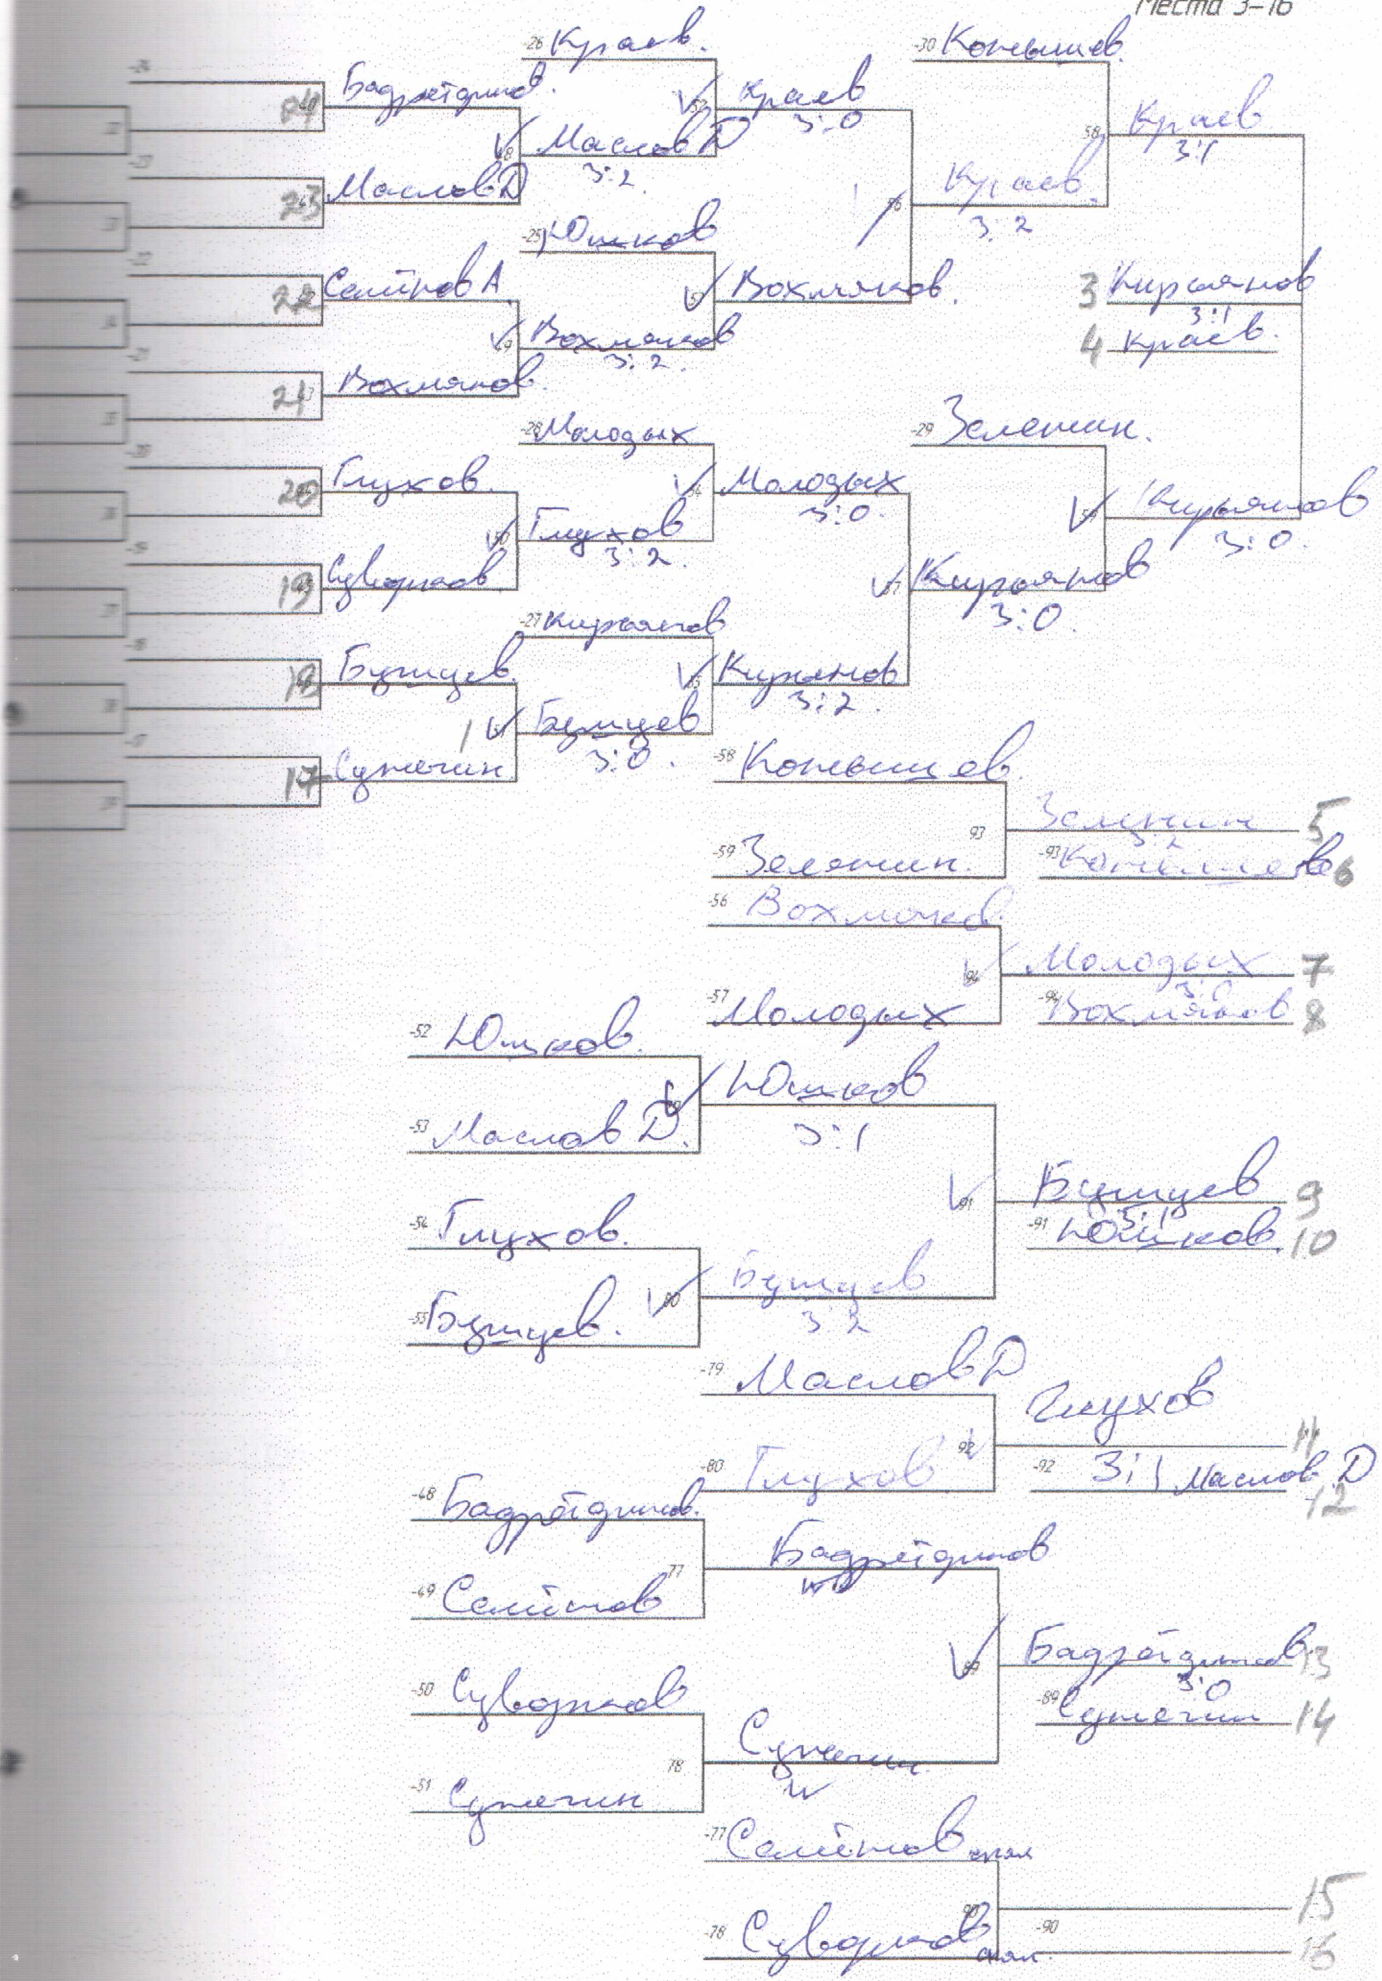 Места 3-16
-26 Краев.
-30 Конышев.
24 Бадретдинов.
52 Краев
3:0
58 Краев
3:1
48 Маслов Д
3:2.
23 Маслов Д
56 Краев.
3:2
-25 Юшков
22 Семёнов А
Вохмяков.
3 Кирьянов
3:1
49 Вохмяков
3:2.
4 Краев.
21 Вохмяков.
-28 Молодых
-29 Зеленин.
20 Глухов.
54 Молодых
3:0.
59 Кирьянов
3:0.
50 Глухов
3:2.
19 Суворков
57 Кирьянов
3:0.
-27 Кирьянов
18 Бушуев.
55 Кирьянов
3:2.
Бушуев
3:0.
17 Сунегин
-58 Конышев.
93 Зеленин 5
3:2
-59 Зеленин.
-93 Конышев 6
-56 Вохмяков.
94 Молодых 7
3:0
-57 Молодых
-94 Вохмяков 8
-52 Юшков.
79 Юшков
3:1
-53 Маслов Д.
91 Бушуев 9
3:1
-91 Юшков. 10
-54 Глухов.
80 Бушуев
3:2
-55 Бушуев.
-79 Маслов Д
92 Глухов 11
3:1
-80 Глухов
-92 Маслов Д 12
-48 Бадретдинов.
77 Бадретдинов
-49 Семёнов
89 Бадретдинов 13
3:0
-89 Сунегин 14
-50 Суворков
78 Сунегин
-51 Сунегин
-77 Семёнов
90 15
-78 Суворков
-90 16